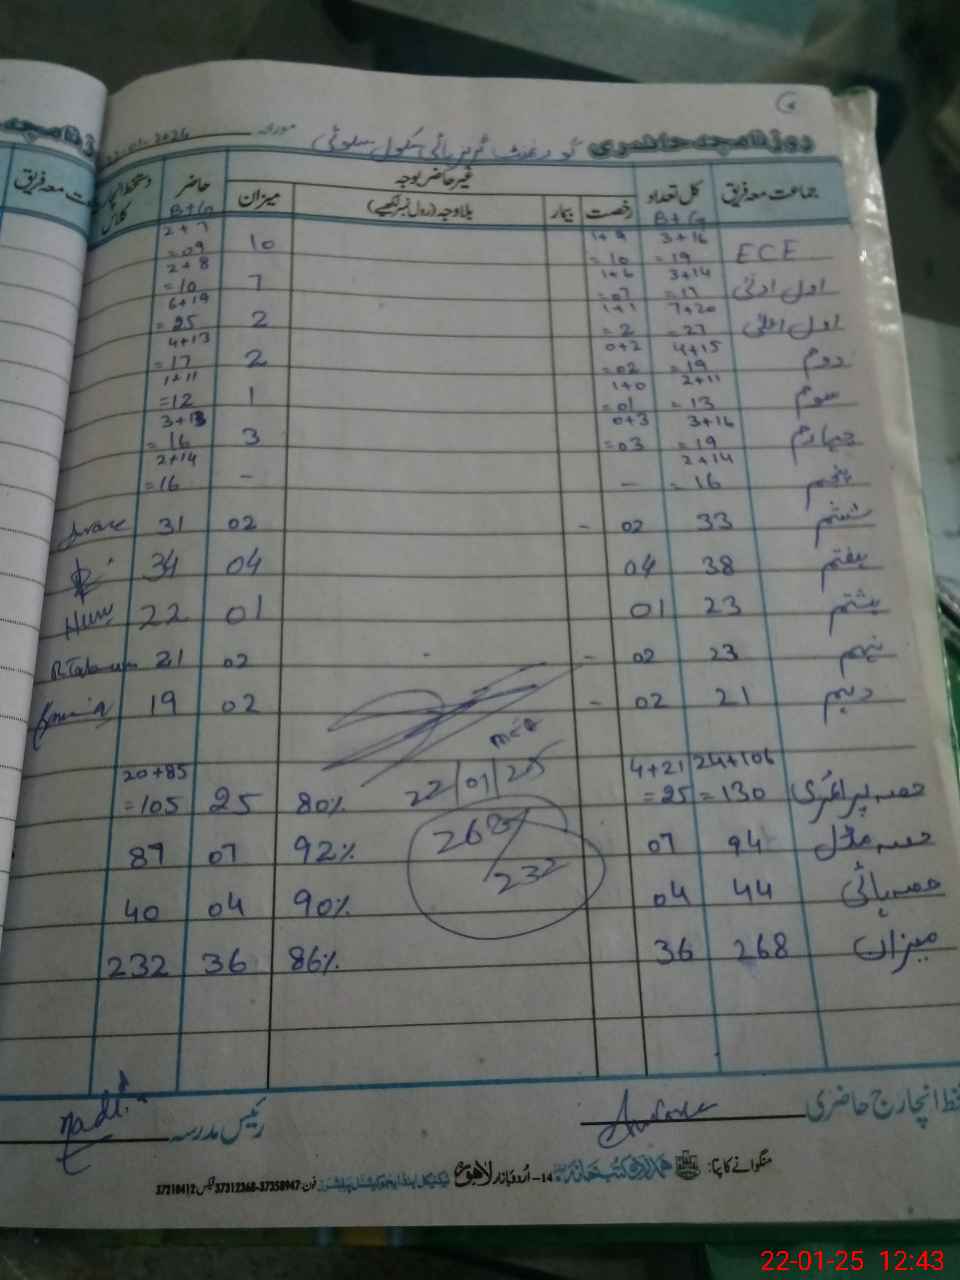 روزنامچہ حاضری گورنمنٹ گرلز ہائی سکول سلوئی مورخہ 22-01-2024
جماعت معہ فریق کل تعداد B+G غیر حاضر بوجہ رخصت بیمار بلاوجہ (رول نمبر لکھیے) میزان حاضر B+G دستخط انچارج کلاس
ECE 3+16 =19 1+9 =10 10 2+7 =09
اول ادنیٰ 3+14 =17 1+6 =07 7 2+8 =10
اول اعلیٰ 7+20 =27 1+1 =2 2 6+19 =25
دوم 4+15 =19 0+2 =02 2 4+13 =17
سوم 2+11 =13 1+0 =01 1 1+11 =12
چہارم 3+16 =19 0+3 =03 3 3+13 =16
پنجم 2+14 =16 – – 2+14 =16
ششم 33 02 - 02 31
ہفتم 38 04 04 34
ہشتم 23 01 01 22
نہم 23 02 - 02 21
دہم 21 02 - 02 19
22/01/25
حصہ پرائمری 24+106 =130 4+21 =25 80% 25 20+85 =105
268/232
حصہ مڈل 94 07 92% 07 87
حصہ ہائی 44 04 90% 04 40
میزان 268 36 86% 36 232
دستخط انچارج حاضری رئیس مدرسہ
منگوانے کا پتہ: ہمدرد کتب خانہ 14-اُردو بازار لاہور فون: 37358947-37312368 فیکس 37210412
22-01-25 12:43